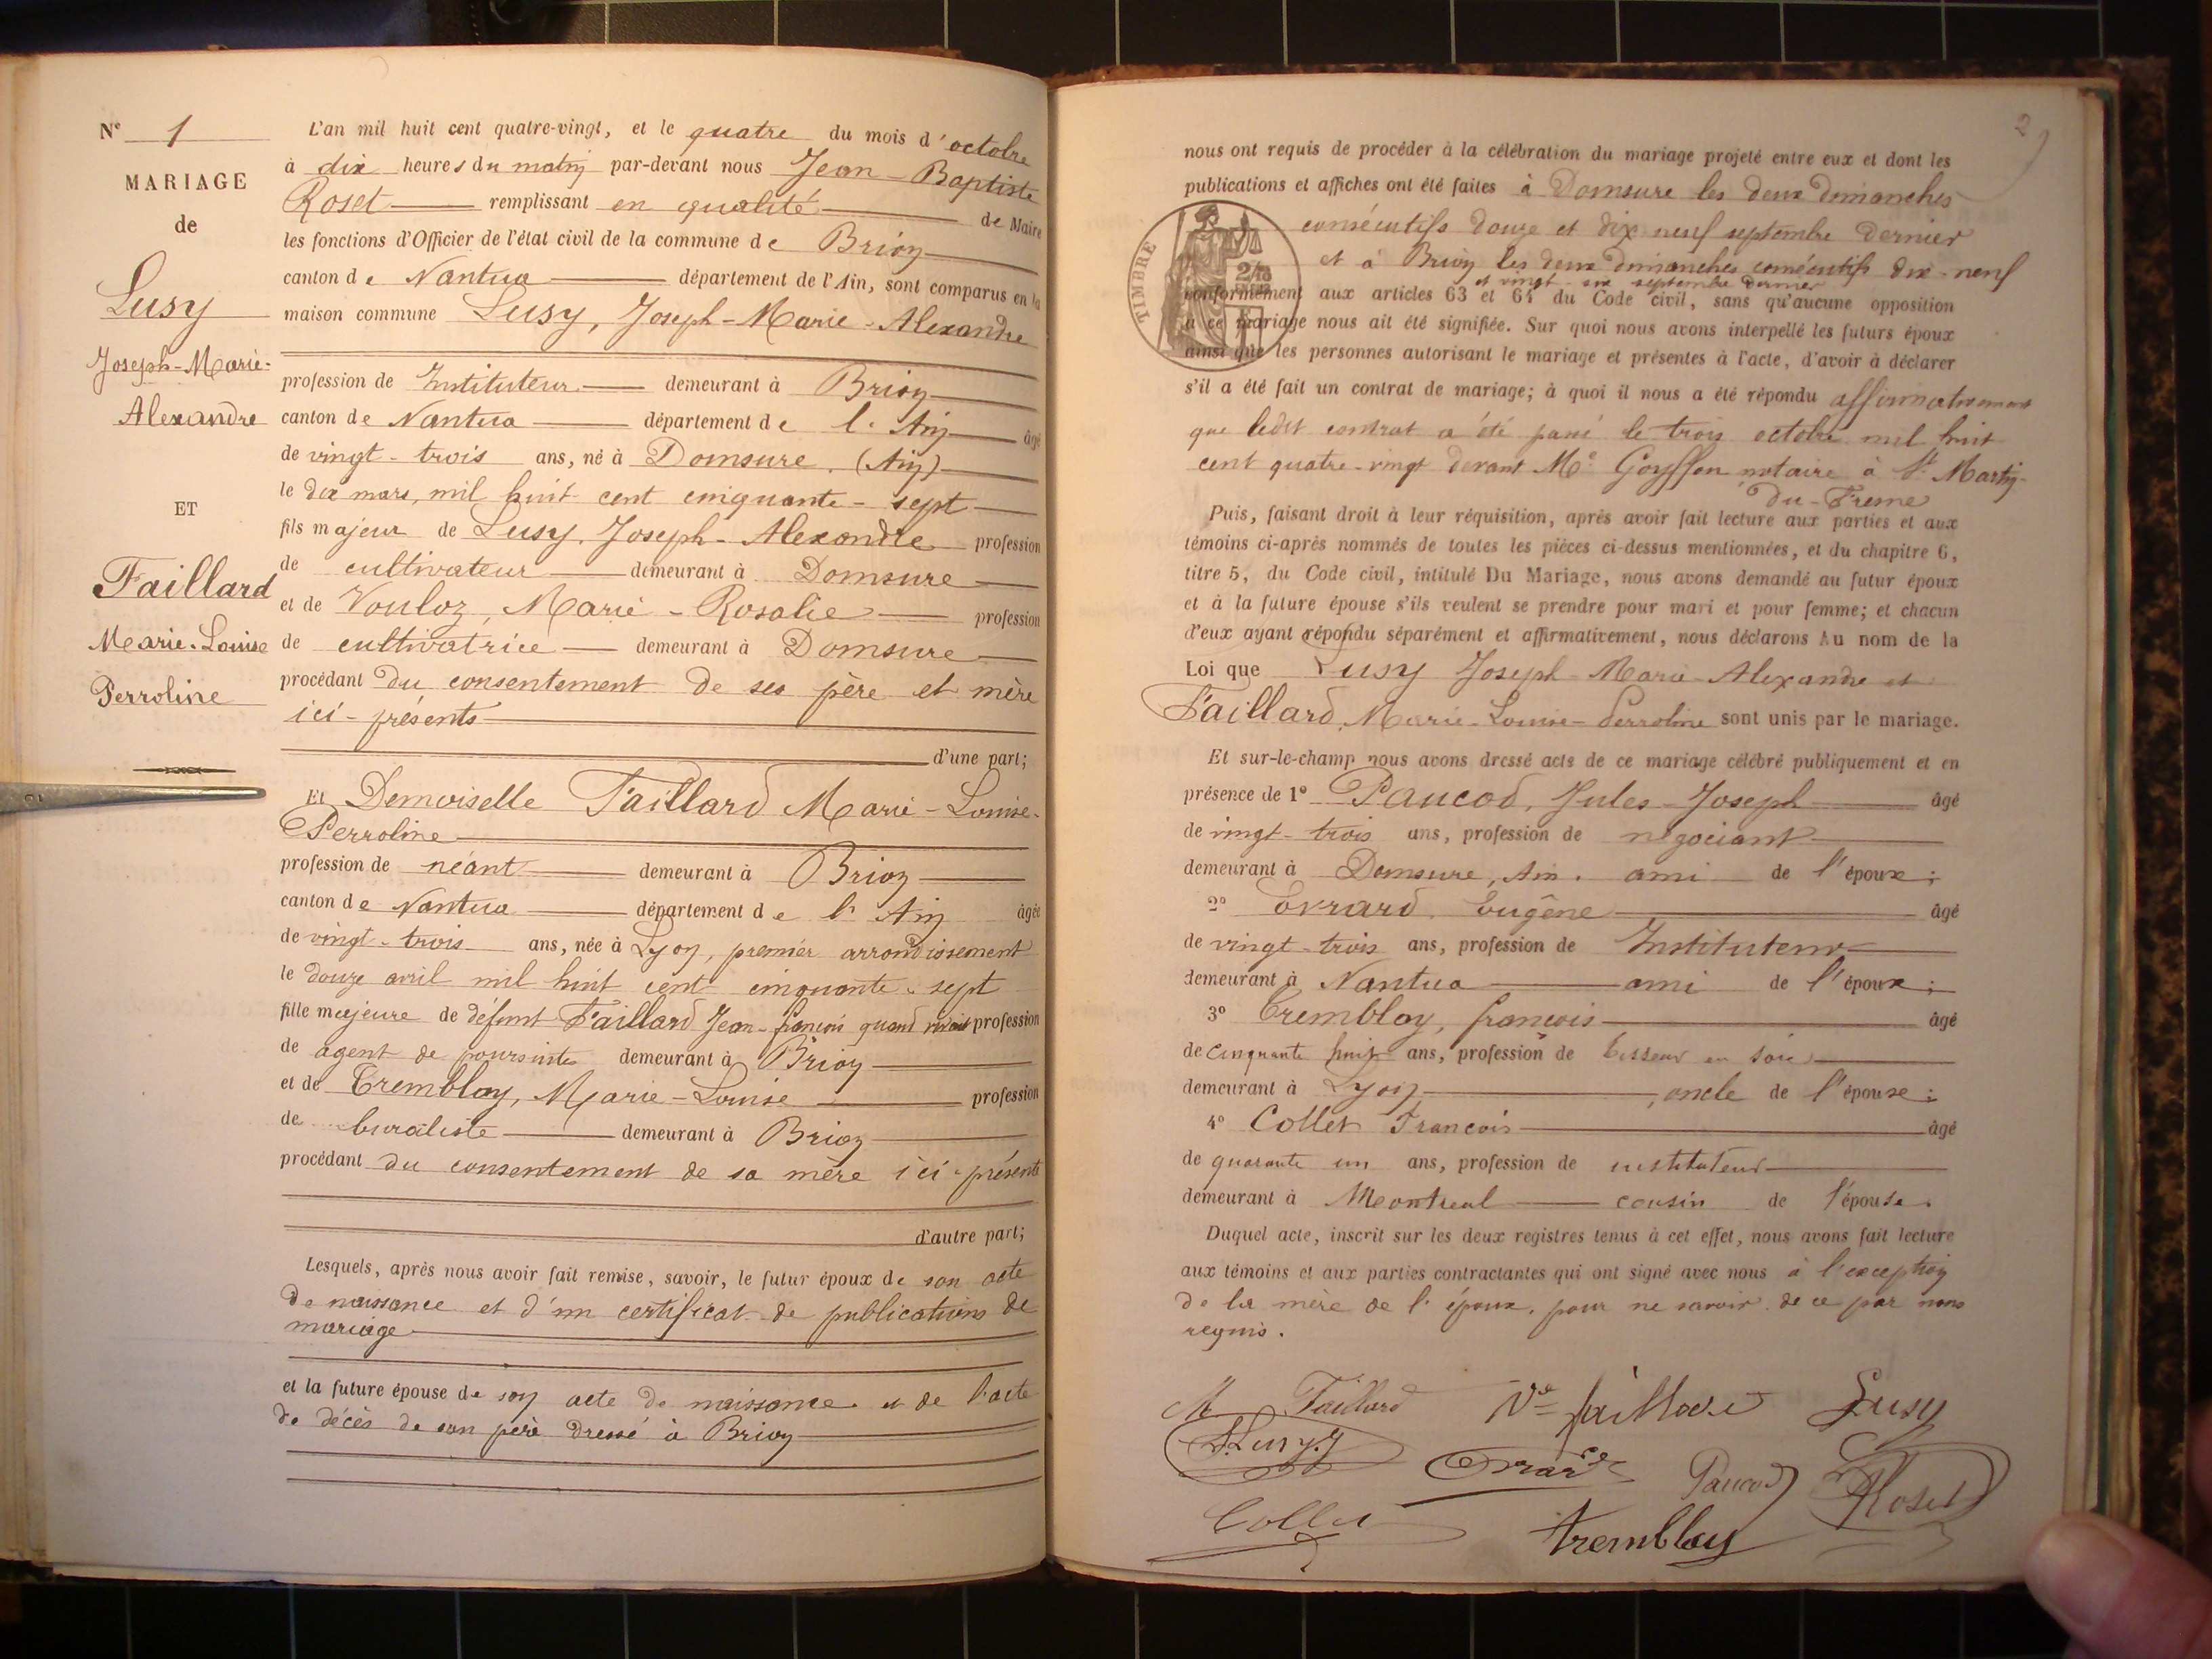 N° 1
MARIAGE
de
Lusy
Joseph-Marie-
Alexandre
ET
Faillard
Marie-Louise
Perroline
L'an mil huit cent quatre-vingt, et le quatre du mois d'octobre
à dix heures du matin par-devant nous Jean-Baptiste
Roset remplissant en qualité de Maire
les fonctions d'Officier de l'état civil de la commune de Brion
canton de Nantua département de l'Ain, sont comparus en la
maison commune Lusy, Joseph-Marie-Alexandre
profession de Instituteur demeurant à Brion
canton de Nantua département de l'Ain âgé
de vingt-trois ans, né à Domsure (Ain)
le dix mars, mil huit cent cinquante-sept
fils majeur de Lusy, Joseph-Alexandre profession
de cultivateur demeurant à Domsure
et de Vouloz, Marie-Rosalie profession
de cultivatrice demeurant à Domsure
procédant du consentement de ses père et mère
ici-présents
d'une part;
Et Demoiselle Faillard Marie-Louise-
Perroline
profession de néant demeurant à Brion
canton de Nantua département de l'Ain âgée
de vingt-trois ans, née à Lyon, premier arrondissement
le douze avril mil huit cent cinquante-sept
fille majeure de défunt Faillard Jean-françois quand vivait profession
de agent de poursuites demeurant à Brion
et de Tremblay, Marie-Louise profession
de buraliste demeurant à Brion
procédant du consentement de sa mère ici-présente
d'autre part;
Lesquels, après nous avoir fait remise, savoir, le futur époux de son acte
de naissance et d'un certificat de publications de
mariage
et la future épouse de son acte de naissance et de l'acte
de décès de son père dressé à Brion
2
nous ont requis de procéder à la célébration du mariage projeté entre eux et dont les
publications et affiches ont été faites à Domsure les deux dimanches
consécutifs douze et dix neuf septembre dernier
et à Brion les deux dimanches consécutifs dix-neuf
et vingt-six septembre dernier
TIMBRE
conformément aux articles 63 et 64 du Code civil, sans qu'aucune opposition
à ce mariage nous ait été signifiée. Sur quoi nous avons interpellé les futurs époux
ainsi que les personnes autorisant le mariage et présentes à l'acte, d'avoir à déclarer
s'il a été fait un contrat de mariage; à quoi il nous a été répondu affirmativement
que ledit contrat a été passé le trois octobre mil huit
cent quatre-vingt devant Me Goyffon notaire à St Martin-
du-Fresne
Puis, faisant droit à leur réquisition, après avoir fait lecture aux parties et aux
témoins ci-après nommés de toutes les pièces ci-dessus mentionnées, et du chapitre 6,
titre 5, du Code civil, intitulé Du Mariage, nous avons demandé au futur époux
et à la future épouse s'ils veulent se prendre pour mari et pour femme; et chacun
d'eux ayant répondu séparément et affirmativement, nous déclarons Au nom de la
Loi que Lusy Joseph-Marie-Alexandre et
Faillard, Marie-Louise-Perroline sont unis par le mariage.
Et sur-le-champ nous avons dressé acte de ce mariage célébré publiquement et en
présence de 1° Paucod, Jules-Joseph âgé
de vingt-trois ans, profession de négociant
demeurant à Domsure, Ain. ami de l'époux;
2° Evrard, Eugène âgé
de vingt-trois ans, profession de Instituteur
demeurant à Nantua ami de l'époux;
3° Tremblay, françois âgé
de cinquante huit ans, profession de tisseur en soie
demeurant à Lyon, oncle de l'épouse;
4° Collet François âgé
de quarante un ans, profession de instituteur
demeurant à Montreal cousin de l'épouse.
Duquel acte, inscrit sur les deux registres tenus à cet effet, nous avons fait lecture
aux témoins et aux parties contractantes qui ont signé avec nous à l'exception
de la mère de l'époux, pour ne savoir de ce par nous
requis.
M Faillard Ve faillard Lusy
Lusy
Evrard Paucod Roset
Collet Tremblay